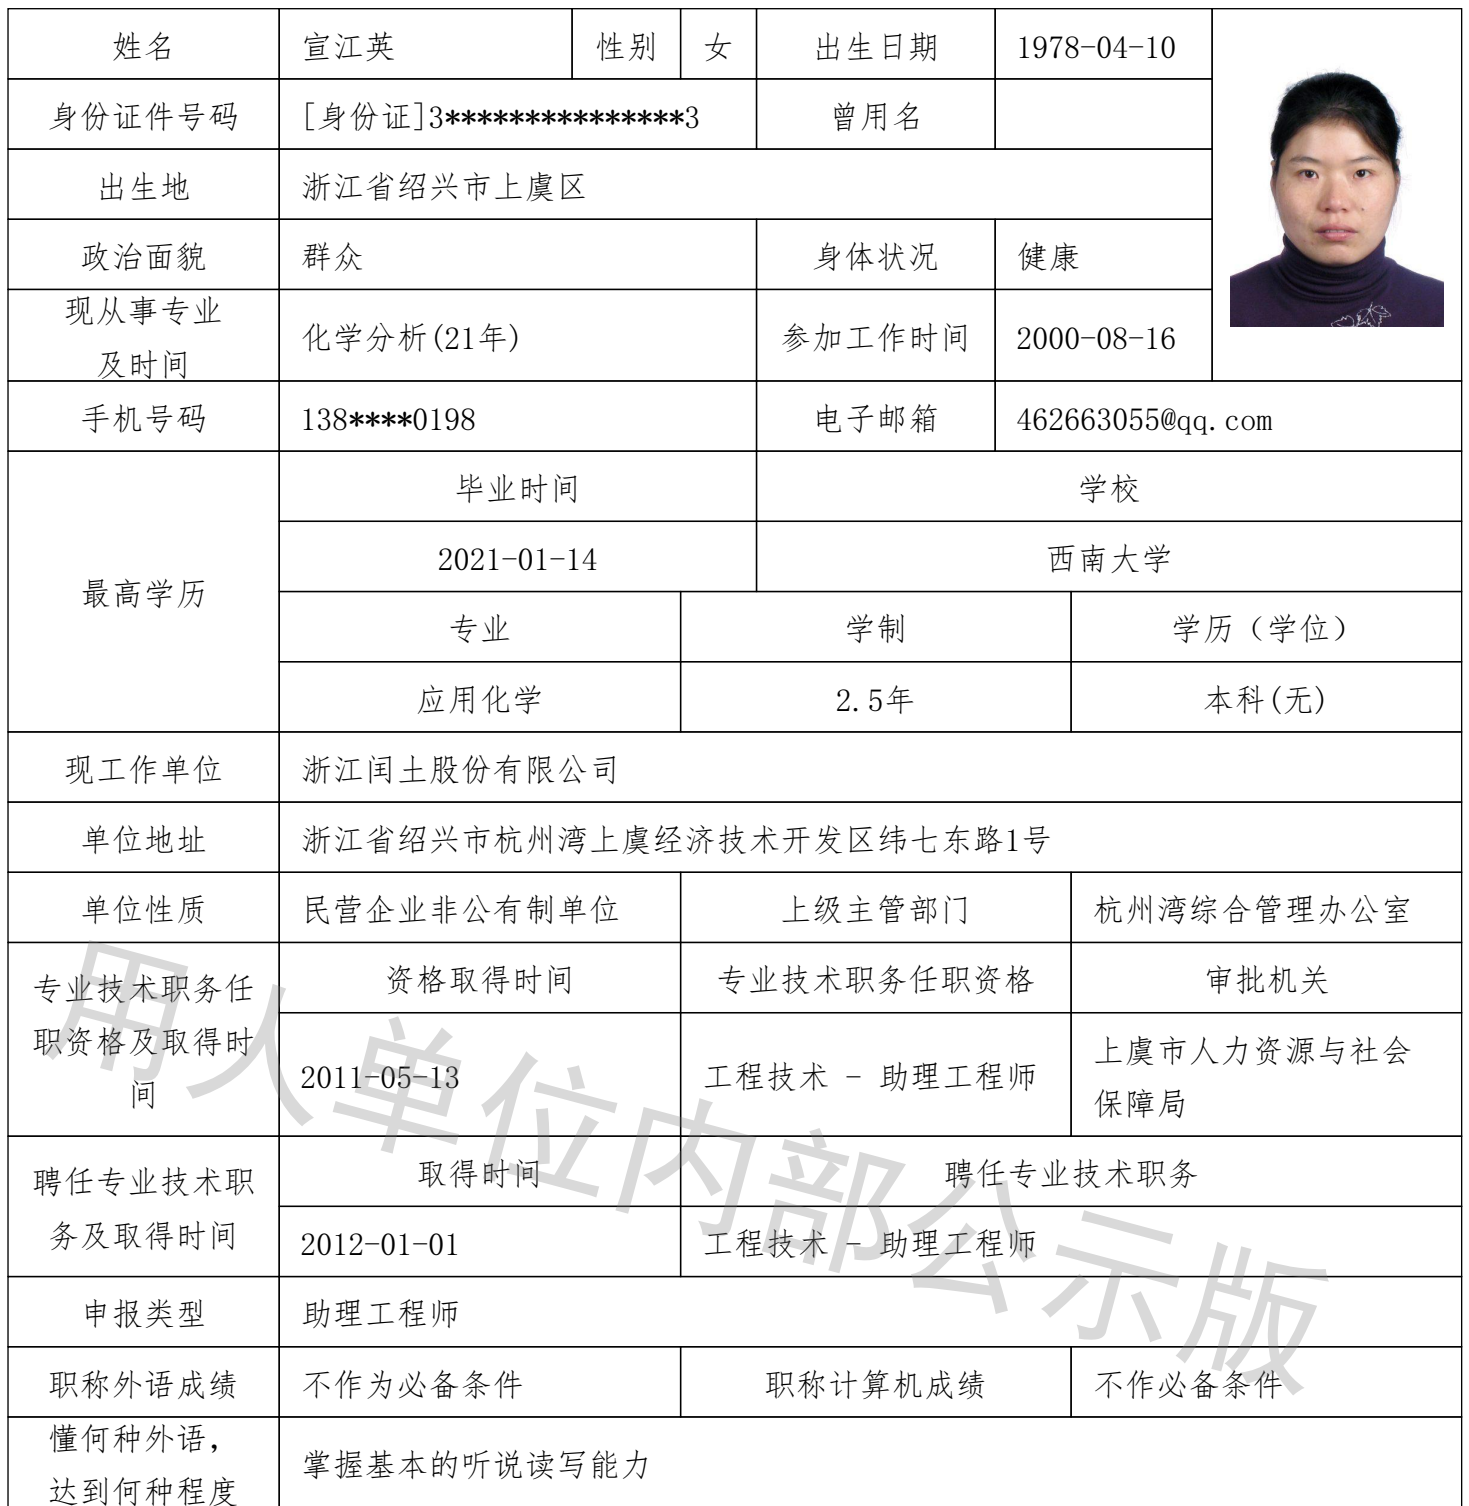 姓名 宣江英 性别 女 出生日期 1978-04-10
身份证件号码 [身份证]3***************3 曾用名
出生地 浙江省绍兴市上虞区
政治面貌 群众 身体状况 健康
现从事专业
及时间
化学分析(21年) 参加工作时间 2000-08-16
手机号码 138****0198 电子邮箱 462663055@qq.com
最高学历
毕业时间 学校
2021-01-14 西南大学
专业 学制 学历（学位）
应用化学 2.5年 本科(无)
现工作单位 浙江闰土股份有限公司
单位地址 浙江省绍兴市杭州湾上虞经济技术开发区纬七东路1号
单位性质 民营企业非公有制单位 上级主管部门 杭州湾综合管理办公室
专业技术职务任
职资格及取得时
间
资格取得时间 专业技术职务任职资格 审批机关
2011-05-13 工程技术 - 助理工程师 上虞市人力资源与社会
保障局
聘任专业技术职
务及取得时间
取得时间 聘任专业技术职务
2012-01-01 工程技术 - 助理工程师
申报类型 助理工程师
职称外语成绩 不作为必备条件 职称计算机成绩 不作必备条件
懂何种外语，
达到何种程度
掌握基本的听说读写能力
用人单位内部公示版